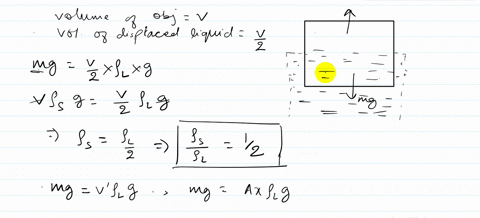 volume of obj = V
vol of displaced liquid = V/2
mg = V/2 × ρL × g
Vρs g = V/2 ρL g
⇒ ρs = ρL/2 ⇒ ρs/ρL = 1/2
mg = V'ρL g , mg = Ax ρL g
mg